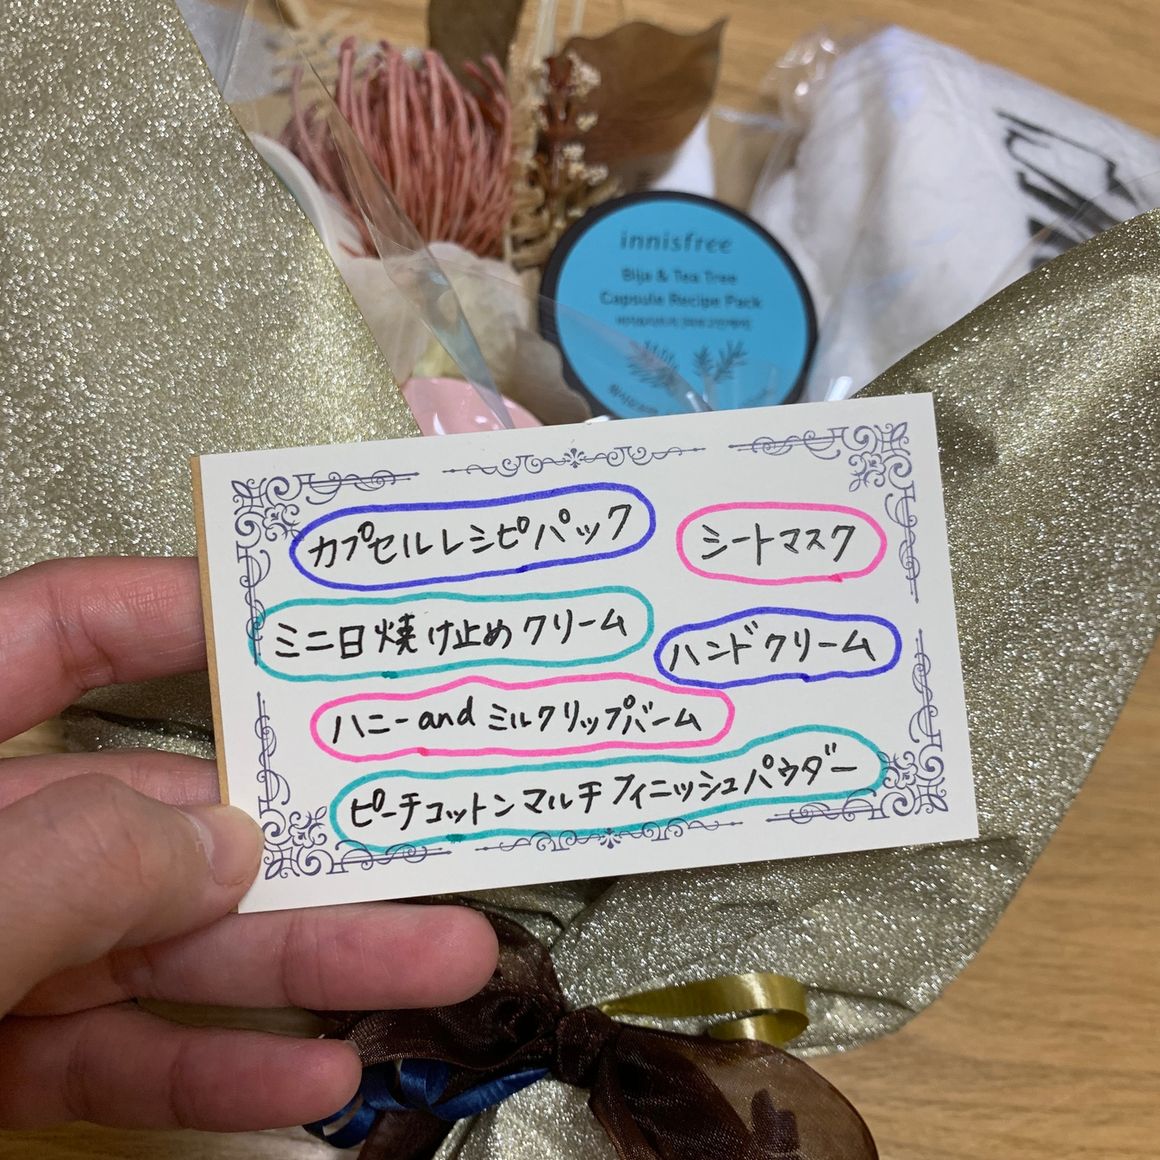 innisfree
Bija & Tea Tree
Capsule Recipe Pack
カプセルレシピパック
シートマスク
ミニ日焼け止めクリーム
ハンドクリーム
ハニーandミルクリップバーム
ピーチコットンマルチフィニッシュパウダー